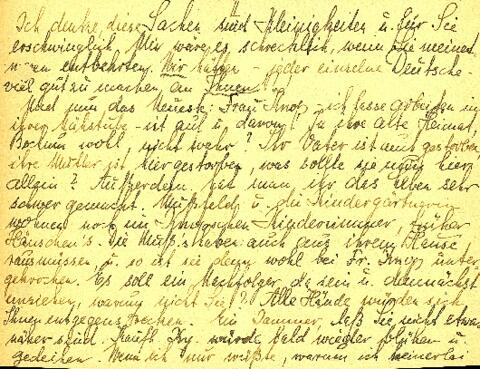 Ich denke, diese Sachen sind Kleinigkeiten u. für Sie
erschwinglich. Mir wäre es schrecklich, wenn Sie meinet-
wegen entbehrten. Wir haben - jeder einzelne Deutsche -
viel gut zu machen an Ihnen.
Und nun das Neueste: Frau Knop - ich lasse arbeiten in
ihrer Nähstube - ist auf u. davon. In ihre alte Heimat,
Bochum wohl, nicht wahr? Ihr Vater ist umgestorben,
ihre Mutter ist hier gestorben, was sollte sie nun hier
allein? Außerdem hat man ihr das Leben sehr
schwer gemacht. u. die Kindergärtnerin
wohnen noch im Knopschen Kinderzimmer, früher
Hänschen's. Die haben auch aus ihrem Hause
rausmüssen, u. so ist sie denn wohl bei Fr. Knop unter-
gekrochen. Es soll ein Nachfolger da sein u. demnächst
umziehen, warum nicht Sie?! Alle Hände würden sich
Ihnen entgegenstrecken. Ein Jammer, daß Sie nicht etwas
näher sind. würde bald wieder blühen u.
gedeihen. Wenn ich nur wüßte, warum ich keinerlei